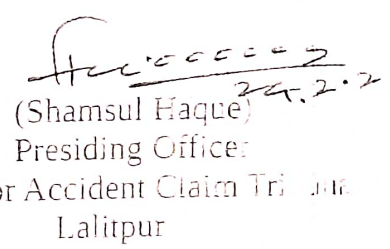 (Shamsul Haque)
Presiding Officer
Accident Claim
Lalitpur